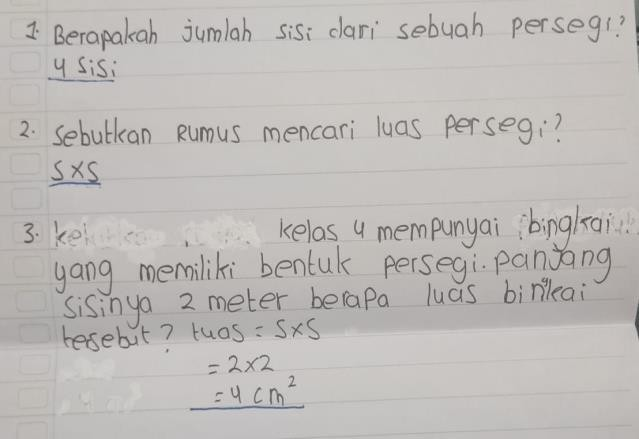 1. Berapakah jumlah sisi dari sebuah persegi?
4 sisi
2. Sebutkan Rumus mencari luas persegi?
S×S
3. kelas 4 mempunyai bingkai
yang memiliki bentuk persegi. panjang
sisinya 2 meter berapa luas binkai
tersebut? Luas = S×S
= 2×2
= 4 cm²